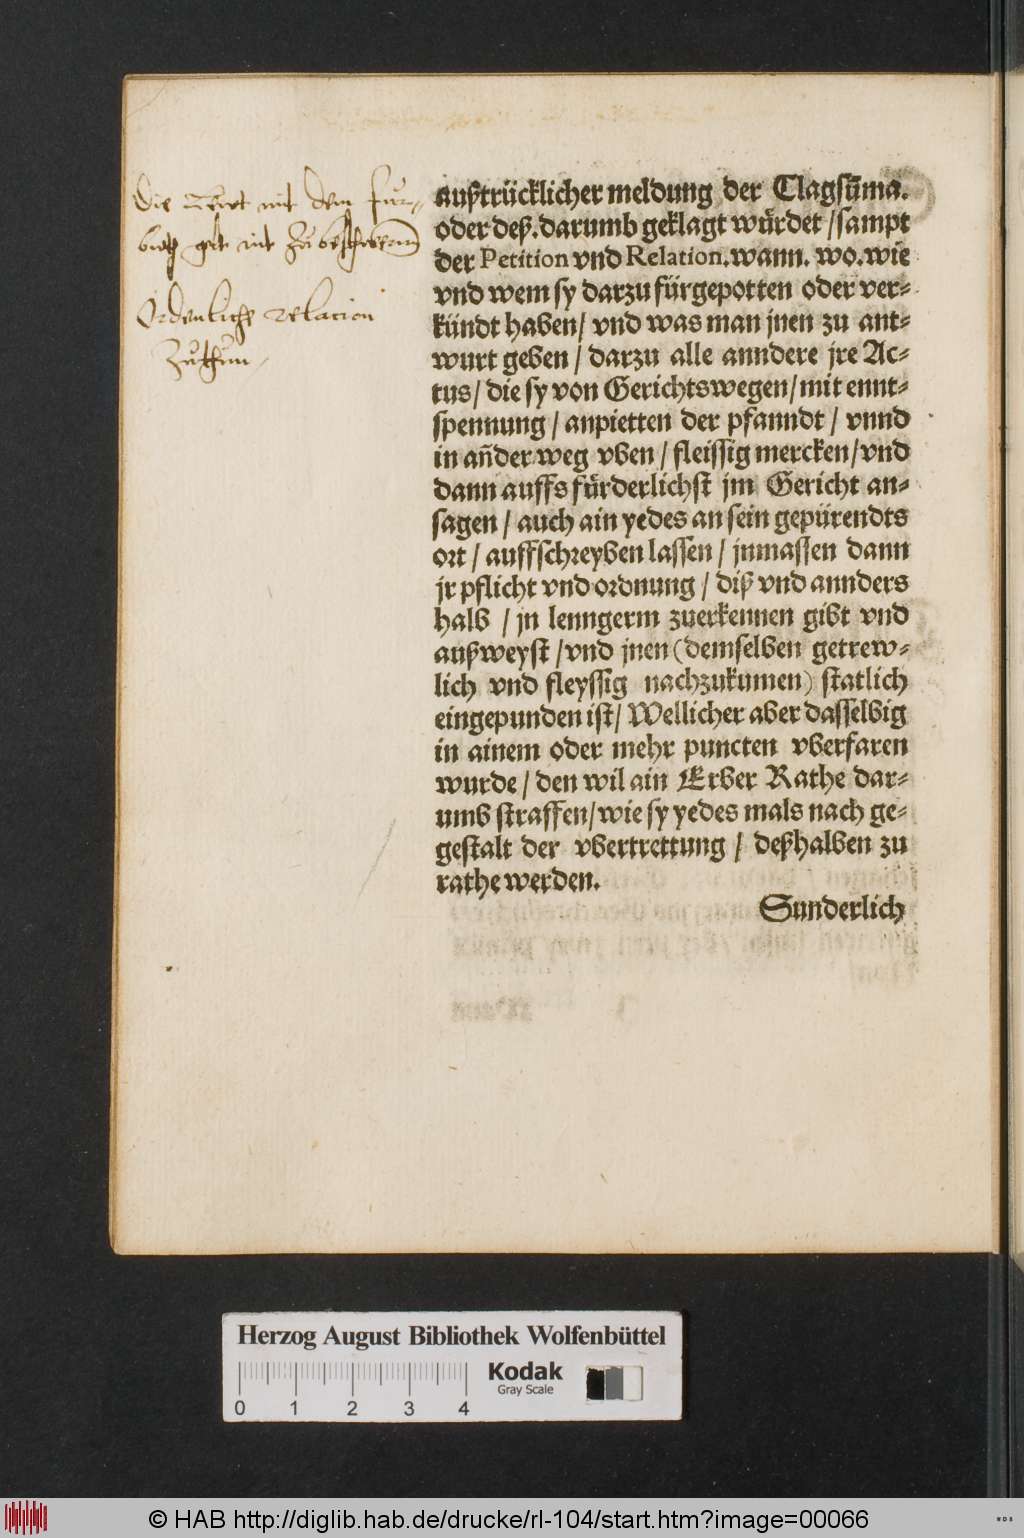 Die
mit dem fur-
zu
Ordenliche relacion
Zuthun
außtrücklicher meldung der Clagsum̃a.
oder deß.darumb geklagt würdet/sampt
der Petition vnd Relation.wann. wo.wie
vnd wem sy darzu fürgepotten oder ver-
kündt haben/ vnd was man jnen zu ant-
wurt geben / darzu alle anndere jre Ac-
tus/ die sy von Gerichtswegen/mit ennt-
spennung / anpietten der pfanndt / vnnd
in an̄der weg vben / fleissig mercken/vnd
dann auffs fürderlichst jm Gericht an-
sagen / auch ain yedes an sein gepürendts
ort / auffschreyben lassen / jnmassen dann
jr pflicht vnd ordnung / diß vnd annders
halb / jn lenngerm zuerkennen gibt vnd
außweyst /vnd jnen (demselben getrew-
lich vnd fleyssig nachzukumen) statlich
eingepunden ist/ Wellicher aber dasselbig
in ainem oder mehr puncten vberfaren
wurde / den wil ain Erber Rathe dar-
umb straffen/wie sy yedes mals nach ge-
gestalt der vbertrettung / deßhalben zu
rathe werden.
Sunderlich
Herzog August Bibliothek Wolfenbüttel
Kodak
Gray Scale
0 1 2 3 4
© HAB http://diglib.hab.de/drucke/rl-104/start.htm?image=00066